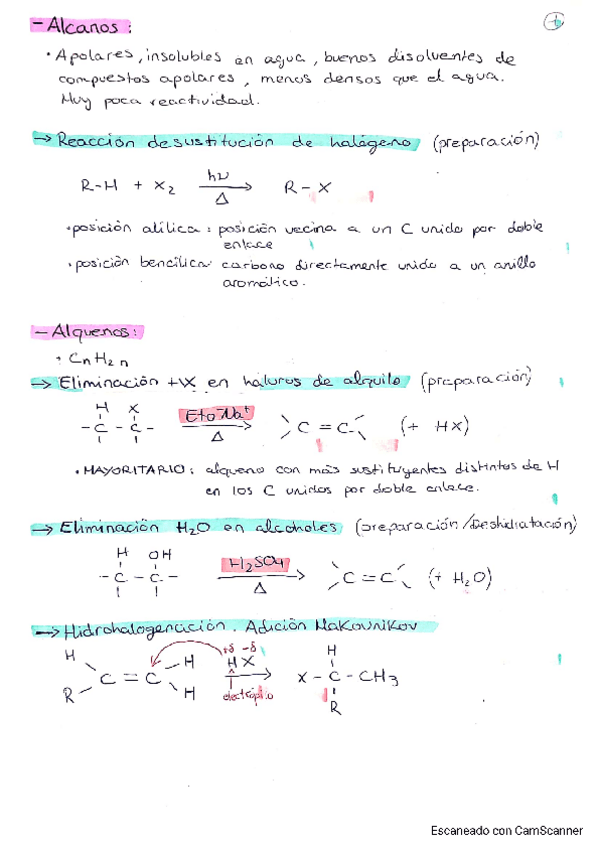 - Alcanos:
· Apolares, insolubles en agua, buenos disolventes de
compuestos apolares, menos densos que el agua.
Muy poca reactividad.
→ Reacción de sustitución de halógeno (preparación)
R-H + X₂ hν Δ → R-X
·posición alílica: posición vecina a un C unido por doble
enlace
·posición bencílica: carbono directamente unido a un anillo
aromático.
- Alquenos:
· CnH2n
→ Eliminación HX en haluros de alquilo (preparación)
H X
- C - C - EtO⁻Na⁺ Δ → C = C (+ HX)
· MAYORITARIO: alqueno con más sustituyentes distintos de H
en los C unidos por doble enlace.
→ Eliminación H₂O en alcoholes (preparación/Deshidratación)
H OH
- C - C - H₂SO₄ Δ → C = C (+ H₂O)
→ Hidrohalogenación. Adición Makovnikov
H H +δ -δ H
C = C HX → X - C - CH3
R H electrófilo R
Escaneado con CamScanner